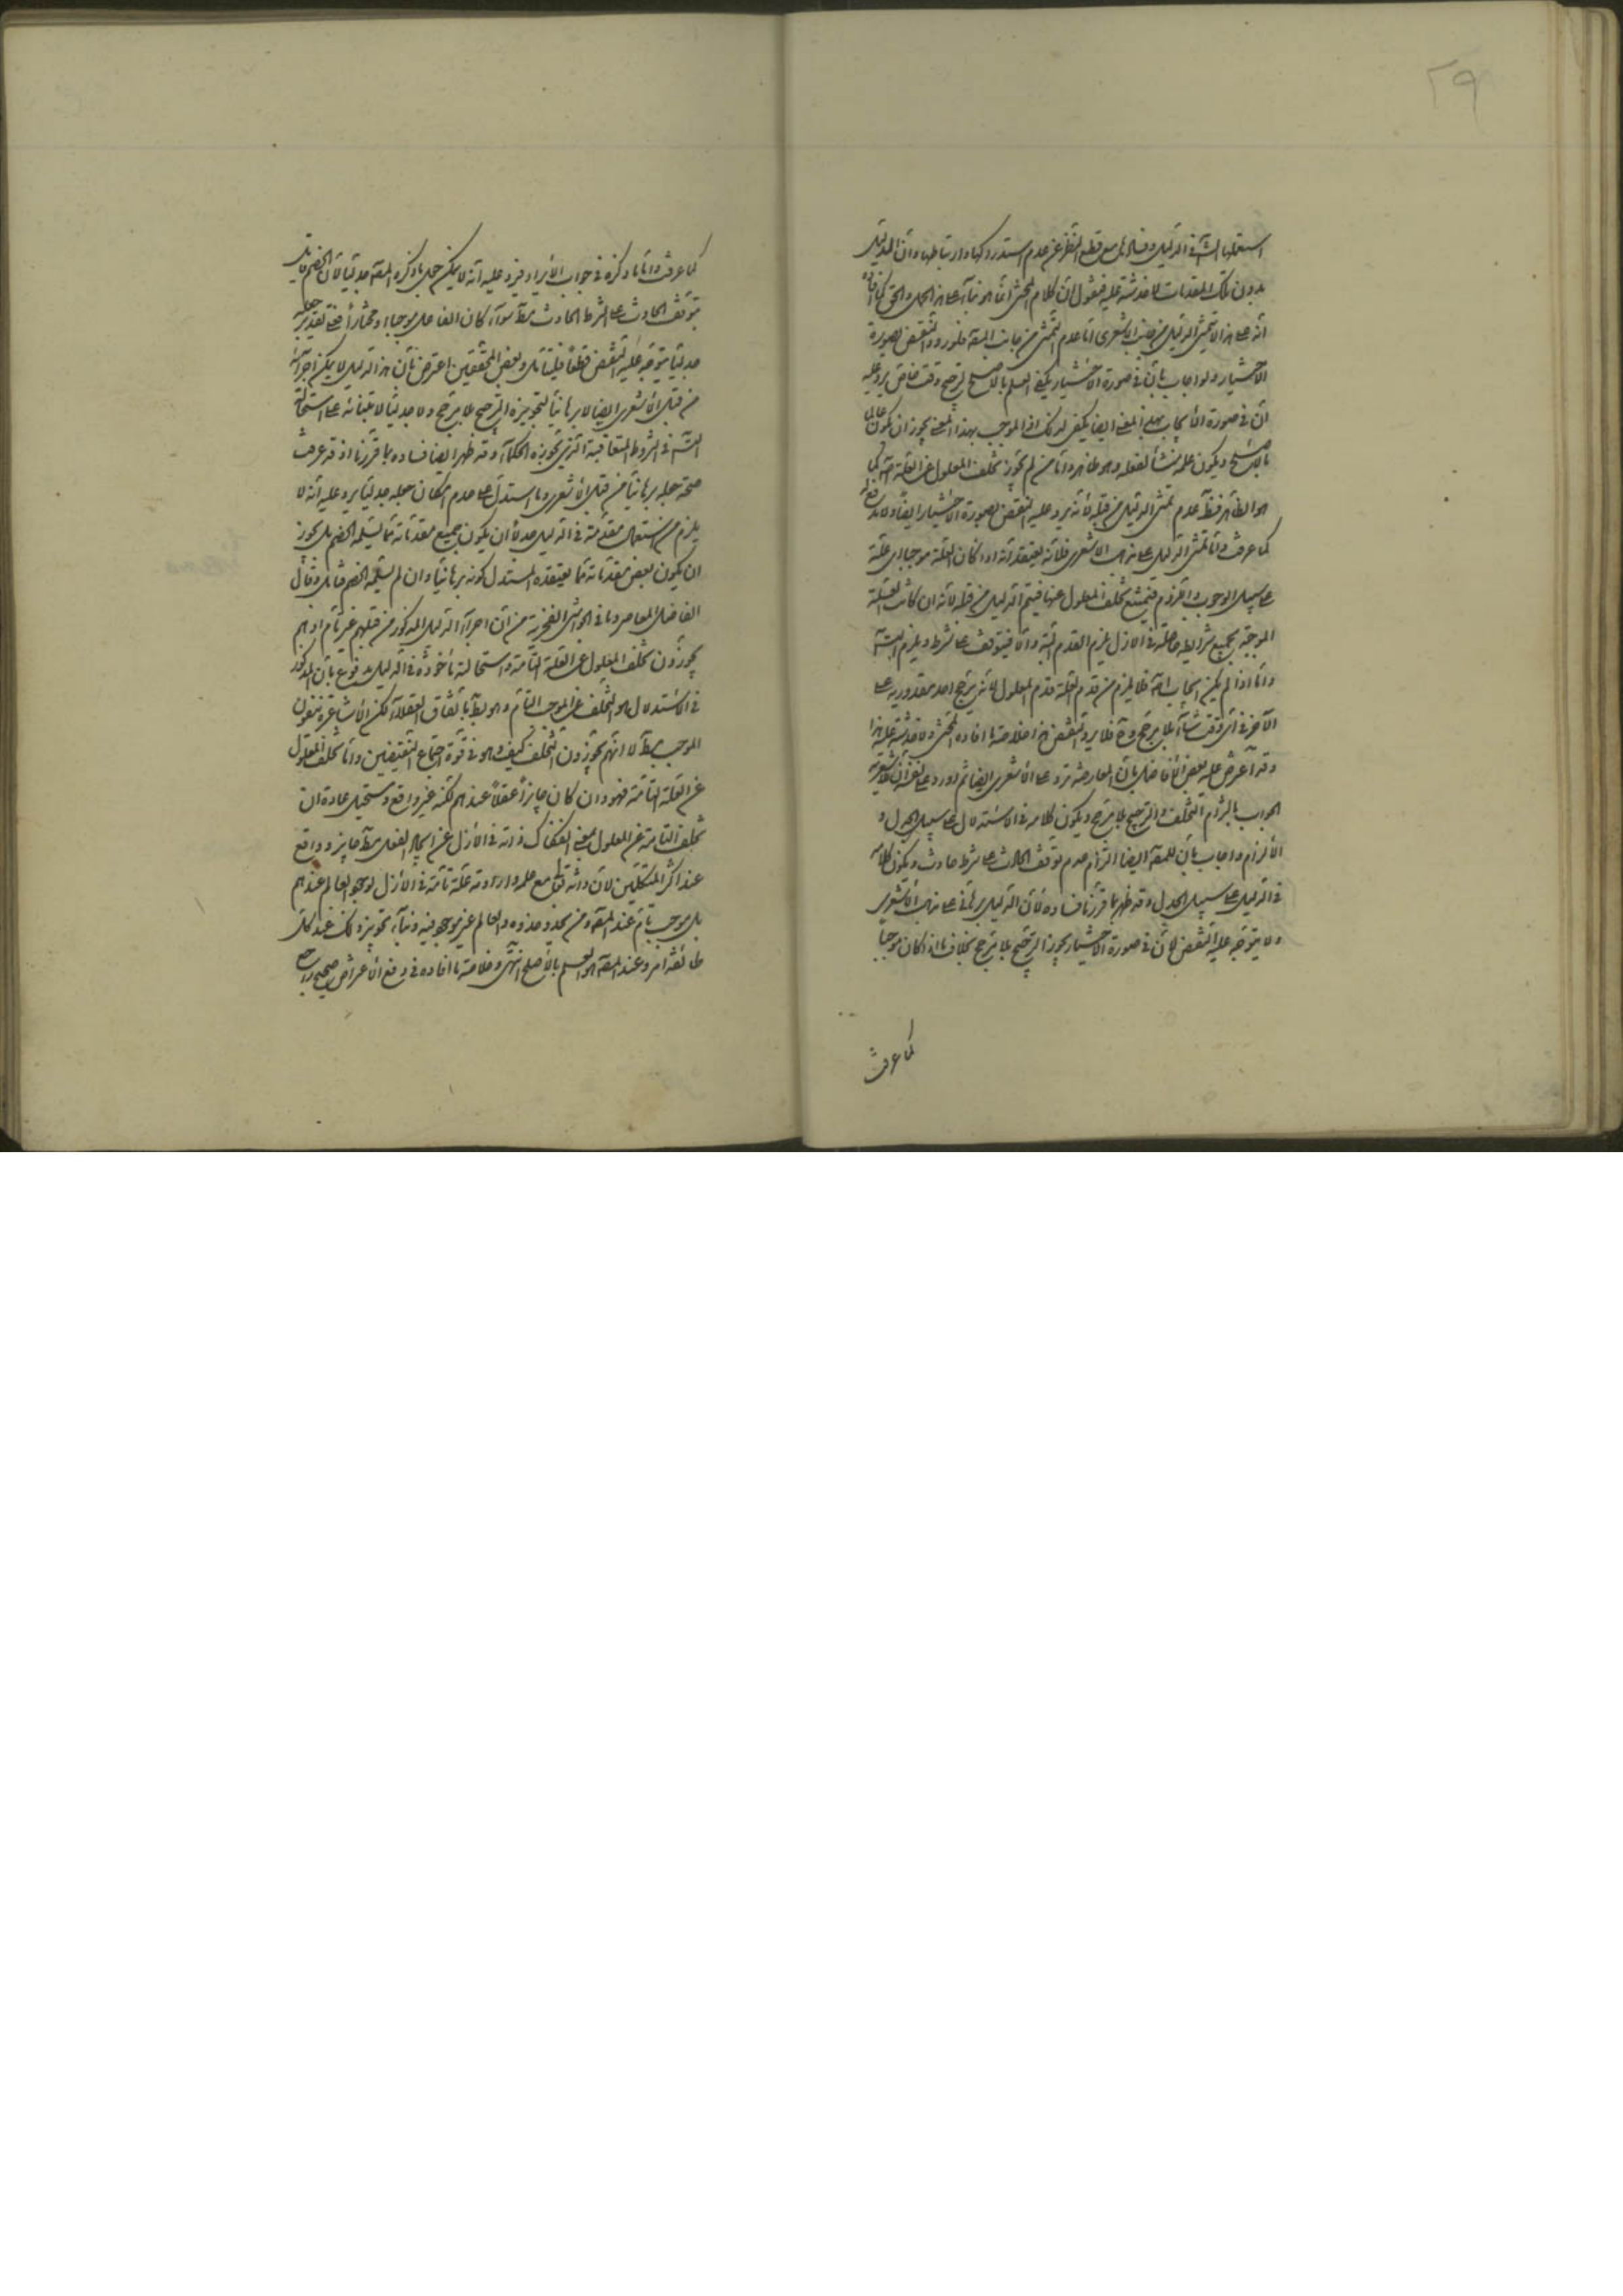 ٢٩
استعملها الشه فى الدليل وفسادها مع قطع النظر عن عدم استدراكها وارتباطها وان الدليل
بدون تلك المقدمات لا خدشة عليه فنقول ان كلام المحشى انما هو بناء على هذا الحمل والحق كما افاده
انه على هذا لا يتمشى الدليل من جانب الاشعرى اما عدم التمشى من جانب المصه فلورود النقض بصورة
الاختيار ولو اجاب بان فى صورة الاختيار يكفى العلم بالاصلح لترجيح وقت خاص يرد عليه
ان فى صورة الايجاب بهذا المعنى ايضا يكفى ذلك اذ الموجب بهذا المعنى يجوز ان يكون عالما
بالاصلح ويكون علمه منشأ لفعله وهو ظاهر واما من لم يجوز تخلف المعلول عن العلة التامة كما
هو الظاهر فظهر عدم تمشى الدليل من قبله لانه يرد عليه النقض بصورة الاختيار ايضا ولا يمكن دفعه
كما عرفت واما تمشى الدليل على مذهب الاشعرى فلانه يعتقد انه اذا كان العلة موجبا اى علة
على سبيل الوجوب واللزوم فيمتنع تخلف المعلول عنها فيتم الدليل من قبله لانه ان كانت العلة
الموجبة بجميع شرايطه حاصلة فى الازل يلزم القدم البتة والا فيتوقف على شرط ويلزم التسه
واما اذا لم يكن ايجاب اصلا فلا يلزم من قدم العلة قدم المعلول لانه يترجح احد مقدوريه على
الاخر فى اى وقت شاء بلا مرجح فلا يرد النقض هذا خلاصة ما افاده المحشى ولا خدشة عليه
وقد اعترض عليه بعض الافاضل بان المعارضة ترد على الاشعرى ايضا ثم اورد على نفسه ان للاشعرية
الجواب بالتزام التخلف والترجيح بلا مرجح ويكون كلامه فى الاستدلال على سبيل الجدل و
الالزام واجاب بان للمصه ايضا التزام عدم توقف الحادث على شرط حادث ويكون كلامه
فى الدليل على سبيل الجدل وقد ظهر بما قررنا فساده لان الدليل برهانى على مذهب الاشعرى
ولا يتوجه عليه النقض لان فى صورة الاختيار يجوز الترجيح بلا مرجح بخلاف ما اذا كان موجبا
كما عرفت
كما عرفت واما ما ذكره فى جواب الايراد فيرد عليه انه لا يمكن حمل ما ذكره المصه جدليا لان الخصم قائل
بتوقف الحادث على الشرط الحادث مطلقا سواء كان الفاعل موجبا او مختارا فعلى تقدير حمله
جدليا يتوجه عليه النقض قطعا فليتأمل وبعض المحققين اعترض بان هذا الدليل لا يمكن اجراؤه
من قبل الاشعرى ايضا لا برهانيا لتجويزه الترجيح بلا مرجح ولا جدليا لابتنائه على استحالة
التسه فى الشروط المتعاقبة الذى يجوزه الحكماء وقد ظهر ايضا فساده بما قررنا اذ قد عرفت
صحة حمله برهانيا من قبل الاشعرى وما استدل على عدم امكان حمله جدليا يرد عليه انه لا
يلزم من استعمال مقدمة فى الدليل جدلا ان يكون جميع مقدماته مما يسلمه الخصم بل يجوز
ان يكون بعض مقدماته مما يعتقده المستدل كونه برهانيا وان لم يسلمه الخصم فتأمل وقال
الفاضل المعاصر وما فى الحواشى الفخرية من ان اجراء الدليل المذكور من قبلهم غير تام اذ هم
يجوزون تخلف المعلول عن العلة التامة واستحالته مأخوذة فى الدليل مدفوع بان المذكور
فى الاستدلال هو التخلف عن الموجب التام وهو بط باتفاق العقلاء لكن الاشاعرة ينفون
الموجب مطلقا لا انهم يجوزون التخلف كيف وهو فى قوة اجتماع النقيضين واما تخلف المعلول
عن العلة التامة فهو وان كان جايزا عقلا عندهم لكنه غير واقع ومستحيل عادة ان
تخلف التامة عن المعلول بمعنى انفكاك ذاته فى الازل عن ايجاد الفعل مطلقا جايز وواقع
عند اكثر المتكلمين لان ذاته تعالى مع علمه وارادته علة تامة فى الازل لوجود العالم عندهم
بل موجب تام عند المصه ومن يحذو حذوه والعالم غير موجود فيه وبناء تجويز ذلك عند كل
طائفة امر وعند المصه هو العلم بالاصلح انتهى وخلاصة ما افاده فى دفع الاعتراض صحيح